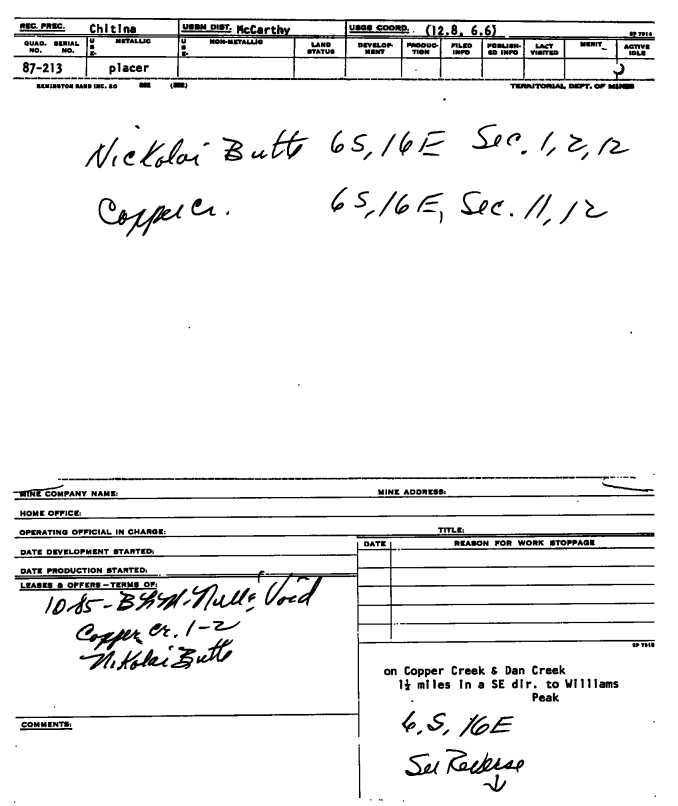 REC. PREC. Chitina USBM DIST. McCarthy USGS COORD. (12.8, 6.6) SP 7914
QUAD. NO. SERIAL NO. USE- METALLIC USE- NON-METALLIC LAND STATUS DEVELOP-MENT PRODUC-TION FILED INFO PUBLISH-ED INFO LAST VISITED MERIT ACTIVE IDLE
87-213 placer
REMINGTON RAND INC. 20 882 (882) TERRITORIAL DEPT. OF MINES
Nickolai Butte 6S, 16E Sec. 1, 2, 12
Copper Cr. 6S, 16E, Sec. 11, 12
MINE COMPANY NAME: MINE ADDRESS:
HOME OFFICE:
OPERATING OFFICIAL IN CHARGE: TITLE:
DATE DEVELOPMENT STARTED: DATE REASON FOR WORK STOPPAGE
DATE PRODUCTION STARTED:
LEASES & OFFERS – TERMS OF:
10-85 - BLM - Null & Void
Copper Cr. 1-2
Nikolai Butte
SP 7915
on Copper Creek & Dan Creek
1½ miles in a SE dir. to Williams
Peak
6.S, 16E
COMMENTS:
See Reverse